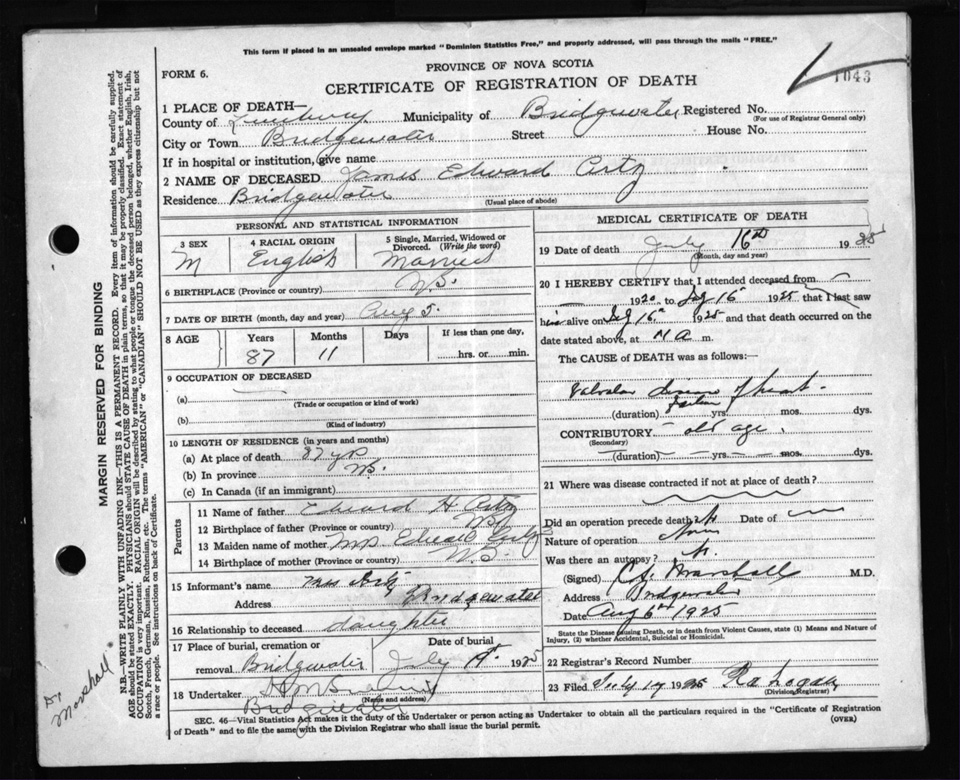 This form if placed in an unsealed envelope marked "Dominion Statistics Free," and properly addressed, will pass through the mails "FREE."
PROVINCE OF NOVA SCOTIA
FORM 6.
CERTIFICATE OF REGISTRATION OF DEATH
1043
1 PLACE OF DEATH—
County of Lunenburg Municipality of Bridgewater Registered No.
(For use of Registrar General only)
City or Town Bridgewater Street House No.
If in hospital or institution, give name
2 NAME OF DECEASED James Edward Artz
Residence Bridgewater
(Usual place of abode)
PERSONAL AND STATISTICAL INFORMATION
3 SEX
M
4 RACIAL ORIGIN
English
5 Single, Married, Widowed or Divorced. (Write the word)
Married
6 BIRTHPLACE (Province or country) N.S.
7 DATE OF BIRTH (month, day and year) Aug 5.
8 AGE Years Months Days If less than one day,
87 11 hrs. or min.
9 OCCUPATION OF DECEASED
(a)
(Trade or occupation or kind of work)
(b)
(Kind of industry)
10 LENGTH OF RESIDENCE (in years and months)
(a) At place of death 87 yrs
(b) In province N.S.
(c) In Canada (if an immigrant)
Parents
11 Name of father Edward H Artz
12 Birthplace of father (Province or country) N.S.
13 Maiden name of mother Mrs Edward Artz
14 Birthplace of mother (Province or country) N.S.
15 Informant's name Mrs Artz
Address Bridgewater
16 Relationship to deceased daughter
17 Place of burial, cremation or removal Bridgewater
Date of burial
July 1925
18 Undertaker
(Name and address)
Bridgewater
MEDICAL CERTIFICATE OF DEATH
19 Date of death July 16th 1925
(Month, day and year)
20 I HEREBY CERTIFY that I attended deceased from
1920 to July 16 1925 that I last saw
him alive on July 16th 1925 and that death occurred on the
date stated above, at m.
The CAUSE OF DEATH was as follows:—
Valvular disease of heart.
(duration) yrs. mos. dys.
CONTRIBUTORY old age.
(Secondary)
(duration) yrs. mos. dys.
21 Where was disease contracted if not at place of death?
Did an operation precede death? Date of
Nature of operation
Was there an autopsy?
(Signed) Marshall M.D.
Address Bridgewater
Date Aug 6th 1925
State the Disease causing Death, or in death from Violent Causes, state (1) Means and Nature of Injury, (2) whether Accidental, Suicidal or Homicidal.
22 Registrar's Record Number
23 Filed July 1925
(Division Registrar)
SEC. 46—Vital Statistics Act makes it the duty of the Undertaker or person acting as Undertaker to obtain all the particulars required in the "Certificate of Registration
of Death" and to file the same with the Division Registrar who shall issue the burial permit.
(OVER)
MARGIN RESERVED FOR BINDING
N.B.—WRITE PLAINLY WITH UNFADING INK—THIS IS A PERMANENT RECORD. Every item of information should be carefully supplied.
AGE should be stated EXACTLY. PHYSICIANS should STATE CAUSE OF DEATH in plain terms, so that it may be properly classified. Exact statement of
OCCUPATION is very important. RACIAL ORIGIN will be described by stating to what people or tongue the deceased person belonged, whether English, Irish,
Scotch, French, German, Russian, Ruthenian, etc. The terms "AMERICAN" or "CANADIAN" SHOULD NOT BE USED as they express citizenship but not
a race or people. See instructions on back of Certificate.
Dr Marshall